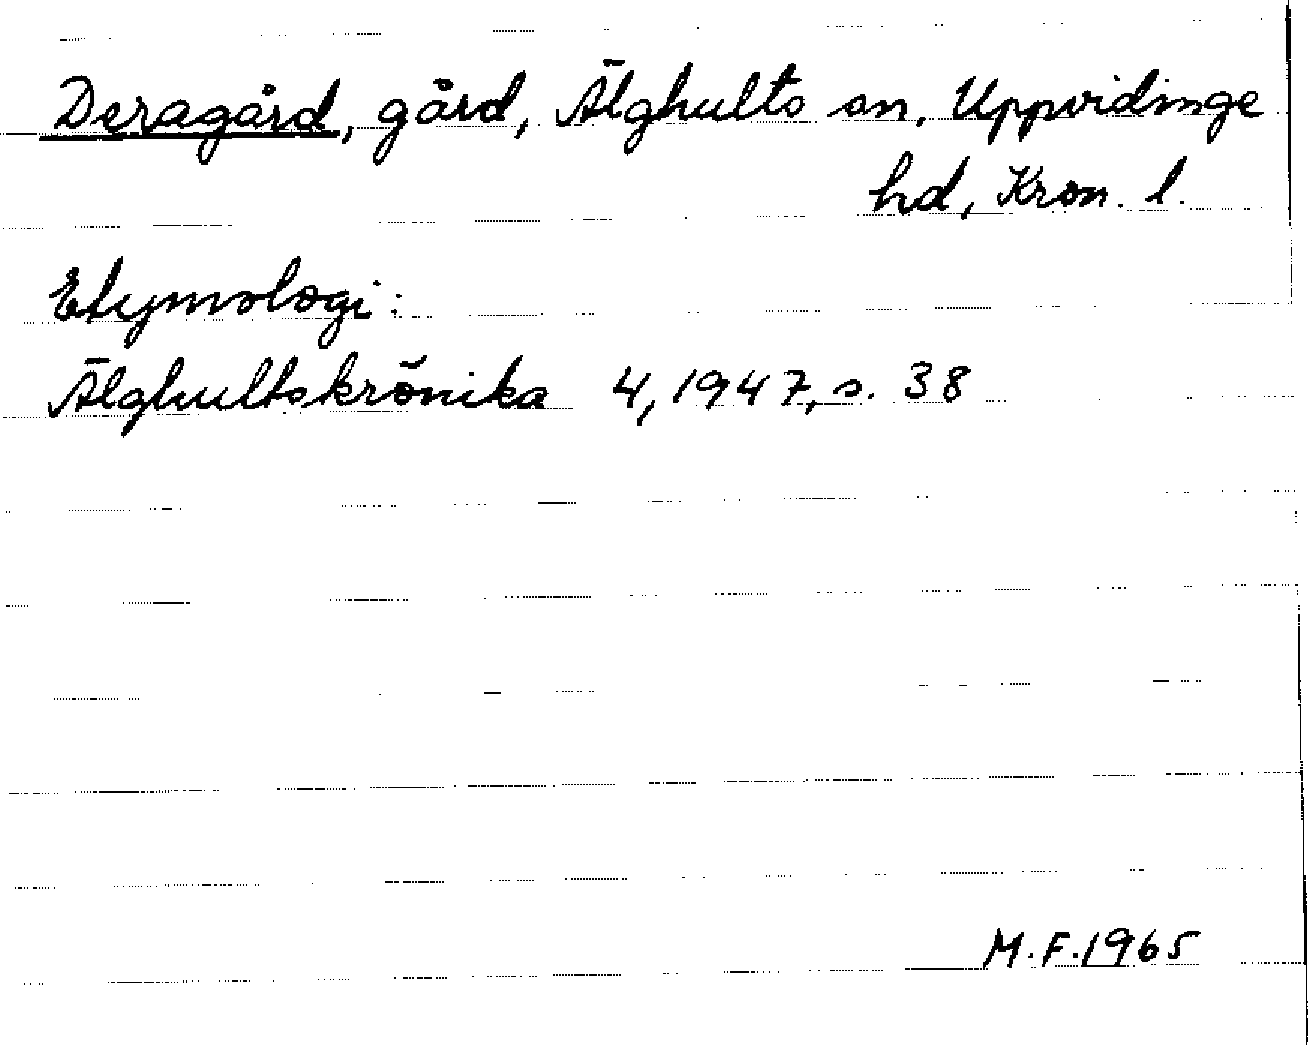 Deragård, gård, Älghults sn, Uppvidinge
hd, Kron. l.
Etymologi:
Älghultskrönika 4, 1947, s. 38
M.F. 1965